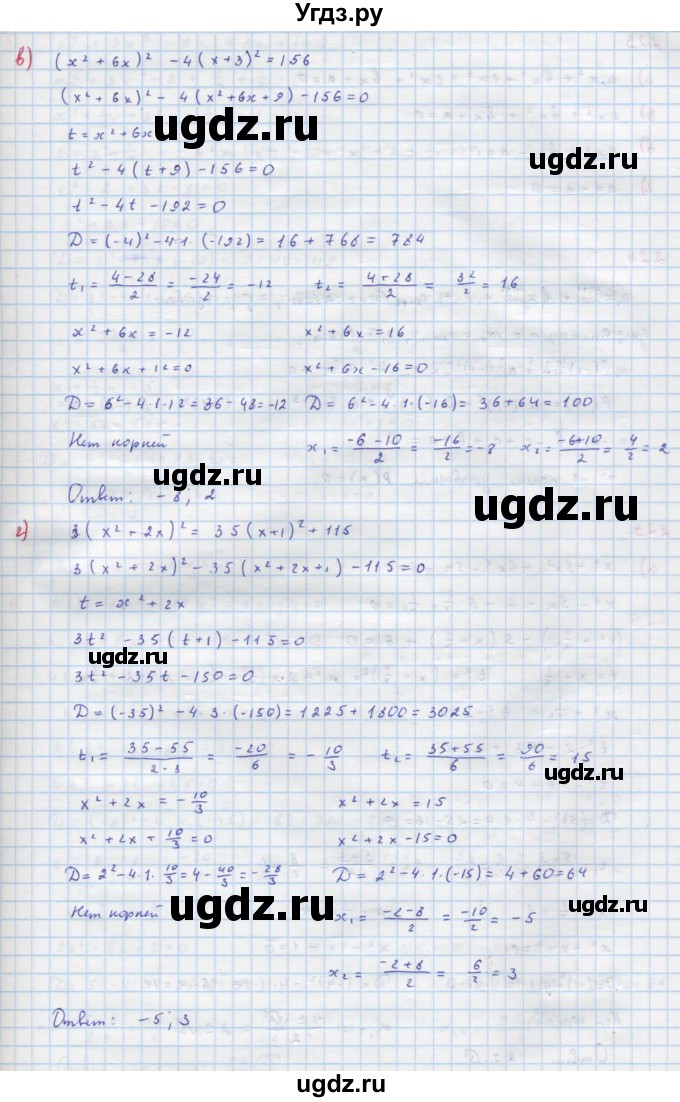 Угдз.ру
в) (x² + 6x)² - 4(x+3)² = 156
(x² + 6x)² - 4(x² + 6x + 9) - 156 = 0
t = x² + 6x
ugdz.ru ugdz.ru
t² - 4(t + 9) - 156 = 0
t² - 4t - 192 = 0
D = (-4)² - 4·1·(-192) = 16 + 768 = 784
t₁ = (4 - 28)/2 = -24/2 = -12 t₂ = (4 + 28)/2 = 32/2 = 16
x² + 6x = -12 x² + 6x = 16
x² + 6x + 12 = 0 x² + 6x - 16 = 0
D = 6² - 4·1·12 = 36 - 48 = -12 D = 6² - 4·1·(-16) = 36 + 64 = 100
Нет корней x₁ = (-6 - 10)/2 = -16/2 = -8 x₂ = (-6+10)/2 = 4/2 = 2
ugdz.ru
Ответ: -8; 2
ugdz.ru
г) 3(x² + 2x)² = 35(x+1)² + 115
3(x² + 2x)² - 35(x² + 2x + 1) - 115 = 0
t = x² + 2x
3t² - 35(t + 1) - 115 = 0
ugdz.ru
3t² - 35t - 150 = 0
D = (-35)² - 4·3·(-150) = 1225 + 1800 = 3025
t₁ = (35 - 55)/(2·3) = -20/6 = -10/3 t₂ = (35 + 55)/6 = 90/6 = 15
ugdz.ru
x² + 2x = -10/3 x² + 2x = 15
x² + 2x + 10/3 = 0 x² + 2x - 15 = 0
D = 2² - 4·1·10/3 = 4 - 40/3 = -28/3 D = 2² - 4·1·(-15) = 4 + 60 = 64
ugdz.ru ugdz.ru
Нет корней x₁ = (-2 - 8)/2 = -10/2 = -5
x₂ = (-2 + 8)/2 = 6/2 = 3
Ответ: -5; 3
ugdz.ru